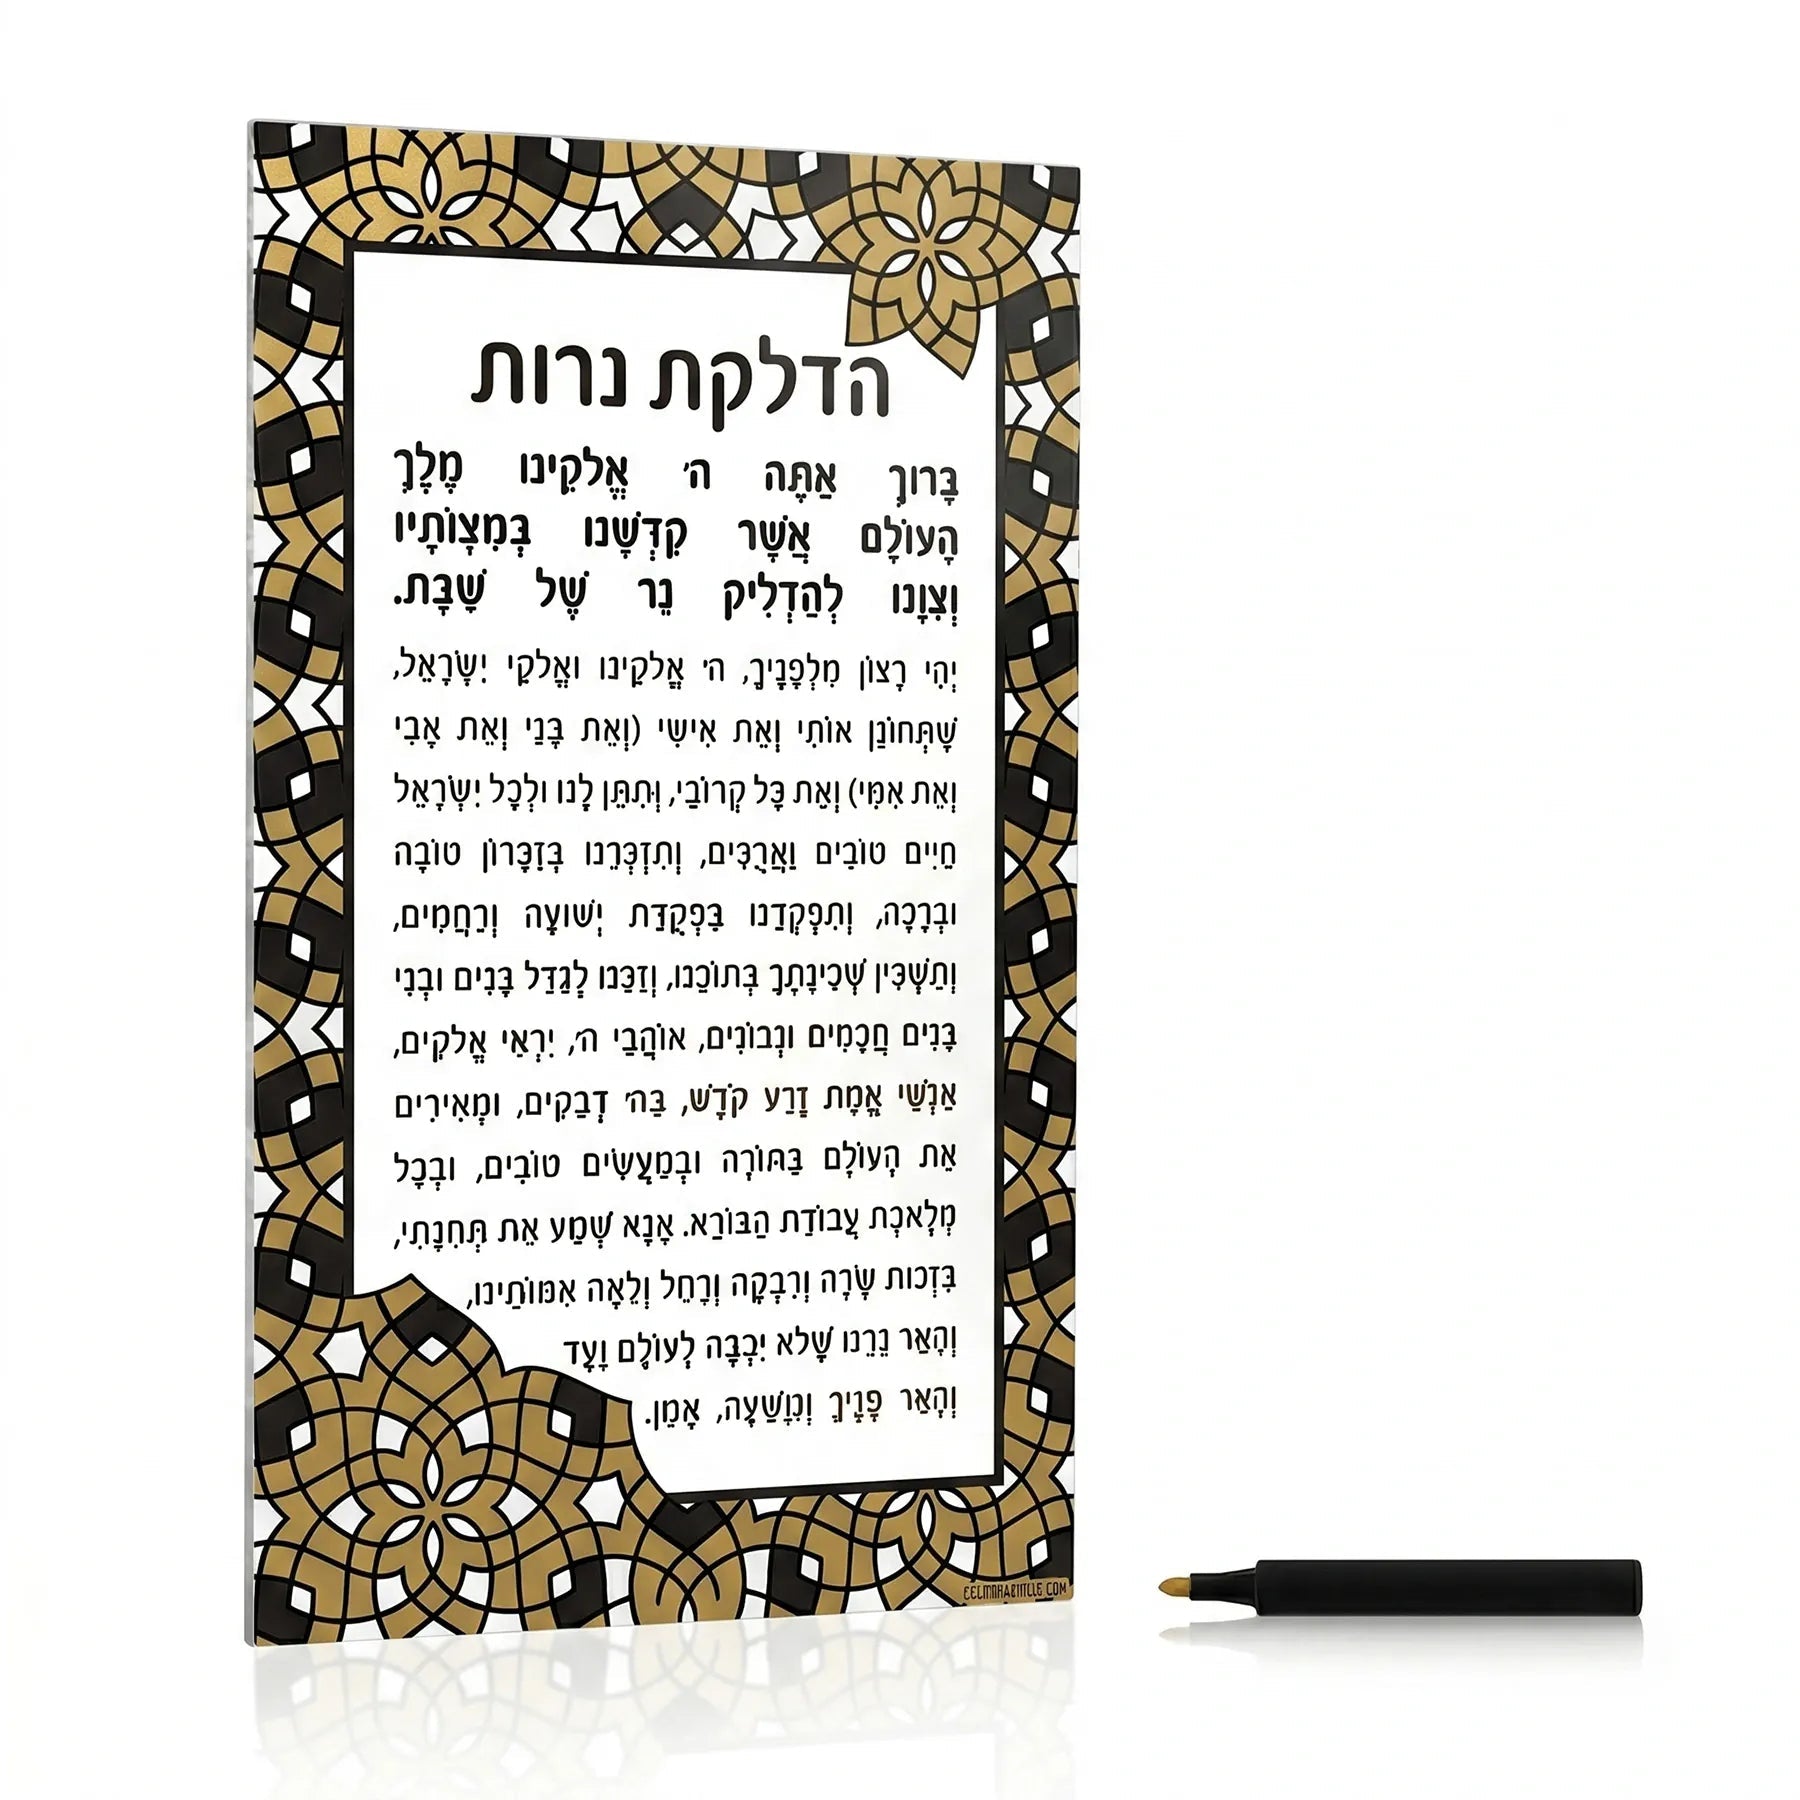 הדלקת נרות
בָּרוּךְ אַתָּה ה' אֱלֹקֵינוּ מֶלֶךְ
הָעוֹלָם אֲשֶׁר קִדְּשָׁנוּ בְּמִצְוֹתָיו
וְצִוָּנוּ לְהַדְלִיק נֵר שֶׁל שַׁבָּת.
יְהִי רָצוֹן מִלְּפָנֶיךָ, ה' אֱלֹקֵינוּ וֶאֱלֹקֵי יִשְׂרָאֵל,
שֶׁתְּחוֹנֵן אוֹתִי וְאֵת אִישִׁי (וְאֵת בָּנַי וְאֵת אָבִי
וְאֵת אִמִּי) וְאֵת כָּל קְרוֹבַי, וְתִתֵּן לָנוּ וּלְכָל יִשְׂרָאֵל
חַיִּים טוֹבִים וַאֲרֻכִּים, וְתִזְכְּרֵנוּ בְּזִכָּרוֹן טוֹבָה
וּבְרָכָה, וְתִפְקְדֵנוּ בִּפְקֻדַּת יְשׁוּעָה וְרַחֲמִים,
וְתַשְׁכִּין שְׁכִינָתְךָ בְּתוֹכֵנוּ, וְזַכֵּנוּ לְגַדֵּל בָּנִים וּבְנֵי
בָּנִים חֲכָמִים וּנְבוֹנִים, אוֹהֲבֵי ה', יִרְאֵי אֱלֹקִים,
אַנְשֵׁי אֱמֶת זֶרַע קֹדֶשׁ, בַּה' דְּבֵקִים, וּמְאִירִים
אֵת הָעוֹלָם בַּתּוֹרָה וּבְמַעֲשִׂים טוֹבִים, וּבְכָל
מְלֶאכֶת עֲבוֹדַת הַבּוֹרֵא. אָנָּא שְׁמַע אֵת תְּחִנָּתִי,
בִּזְכוּת שָׂרָה וְרִבְקָה וְרָחֵל וְלֵאָה אִמּוֹתֵינוּ,
וְהָאֵר נֵרֵנוּ שֶׁלֹּא יִכְבֶּה לְעוֹלָם וָעֶד
וְהָאֵר פָּנֶיךָ וְנִוָּשֵׁעָה, אָמֵן.